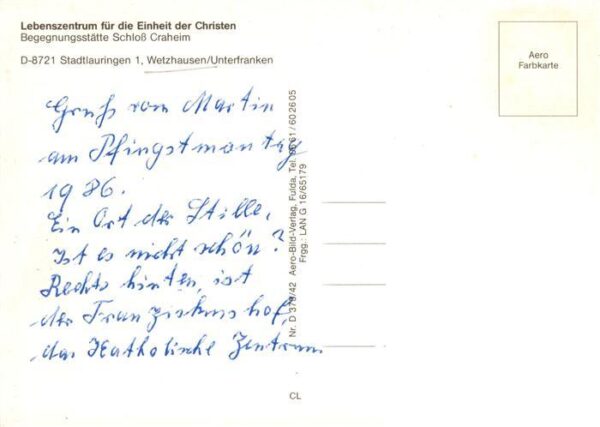 Lebenszentrum für die Einheit der Christen
Begegnungsstätte Schloß Craheim
D-8721 Stadtlauringen 1, Wetzhausen/Unterfranken
Aero
Farbkarte
Gruß vom Martin
am Pfingstmontag
1986.
Ein Ort der Stille,
Ist es nicht schön?
Rechts hinten, ist
der Franziskushof,
das Katholische Zentrum
Nr. D 379/42 Aero-Bild-Verlag, Fulda, Tel. 06 61/60 26 05
Frgg.: LAN G 16/65179
CL